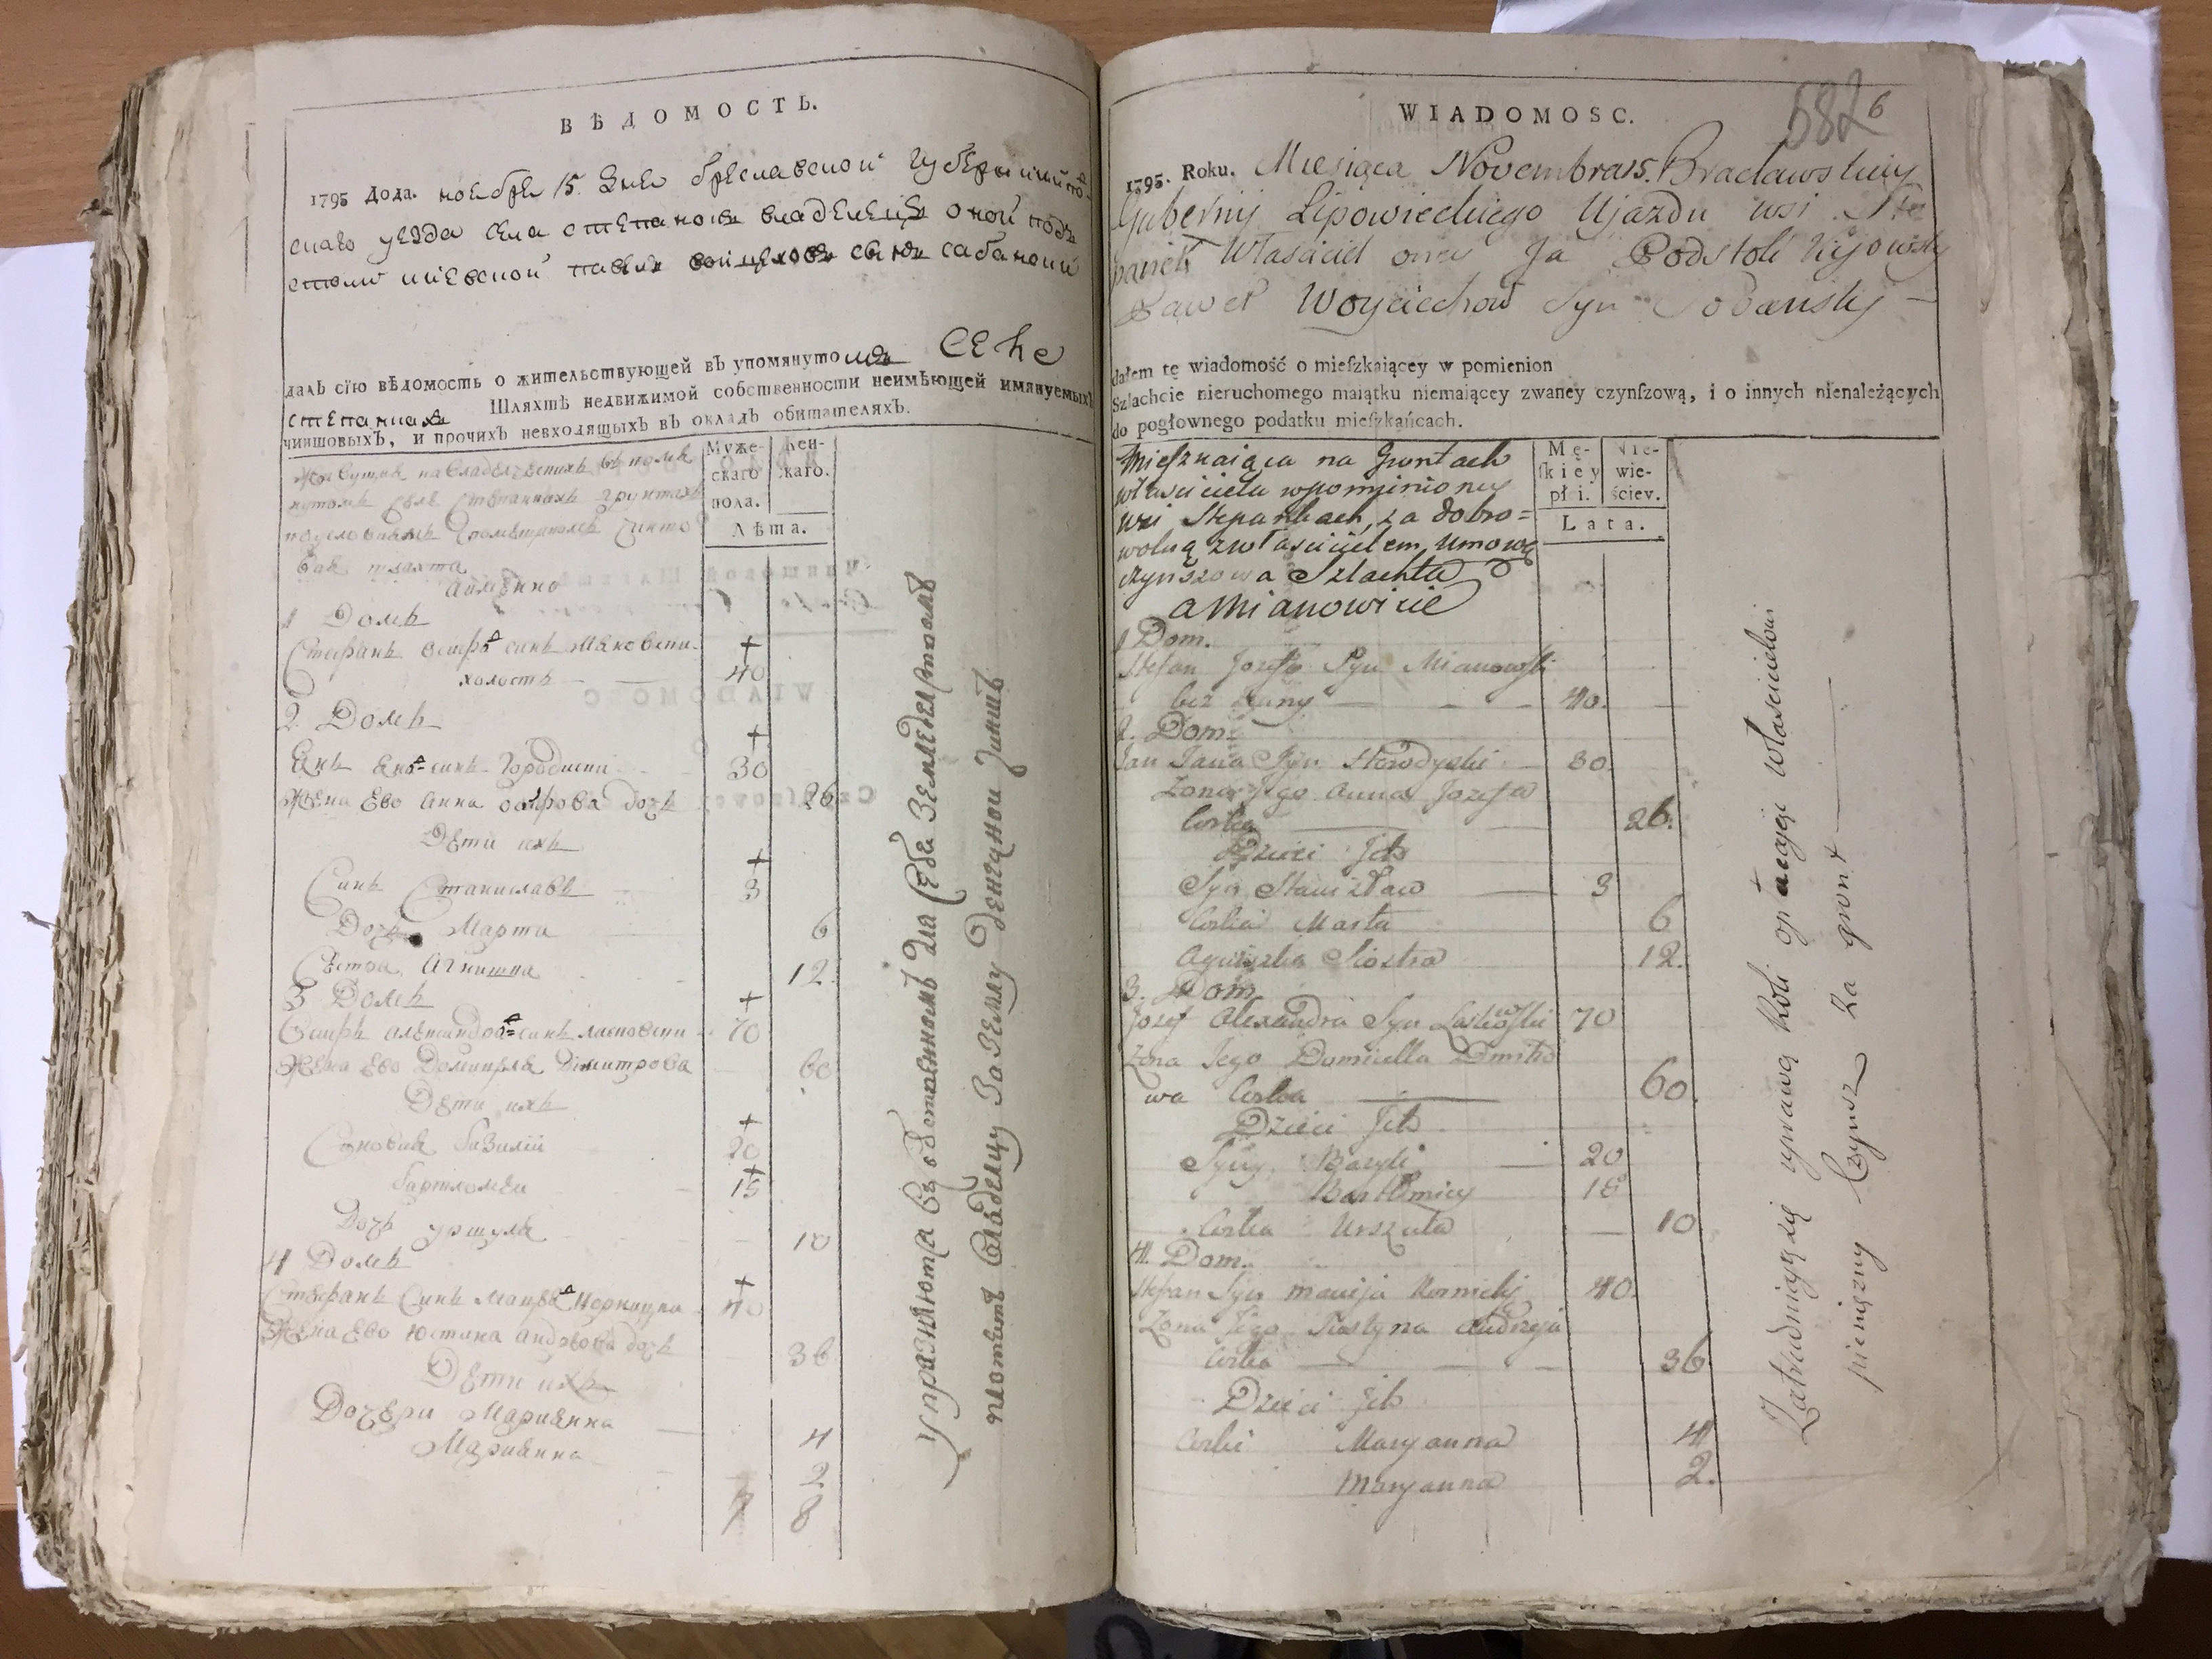 ВѢДОМОСТЬ.
1795 Года. ноебре 15. дне бреславской губернии
скаго уезда села степанокъ владелецъ оной подъ
столи киевской павелъ войцеховъ сынъ сабанский
далъ сїю вѣдомость о жительствующей въ упомянутомъ селе
степанкахъ Шляхтѣ недвижимой собственности неимѣющей имянуемыхъ
чиншовыхъ, и прочихъ невходящыхъ въ окладъ обитателяхъ.
Муже-
скаго
пола.
Жен-
скаго.
Лѣта.
шляхта
аименно
1 Домъ
Стефанъ осифа синъ Мяновски
холостъ 40
2. Домъ
Янъ яна синъ Городиски 30
Жена Ево Анна осифова дочъ 26
Дети ихъ
Синъ Станиславъ 3
Дочъ Марта 6
Сестра Агнишка 12
3 Домъ
Осифъ александра синъ ласковски 70
Жена Ево Домицеля Димитрова 60
Дети ихъ
Синовья базилий 20
бартломеи 15
Дочъ уршула 10
4 Домъ
Стефанъ Синъ Мацея Корницки 40
Жена Ево Юстина андреова дочъ 36
Дети ихъ
Дочери Марианна 4
Марианна 2
7 8
упражняются въ собственномъ для себя земледелствомъ
платятъ владелцу за землу денежной чиншъ
WIADOMOSC.
682 6
1795. Roku. Miesiąca Novembra 15. Bracławskiey
Guberny Lipowieckiego Ujazdu wsi Ste
panek Właściciel oney Ja Podstoli Kijowsky
Paweł Woyciechow Syn Sobansky —
dałem tę wiadomość o mieſzkaiącey w pomienion
Szlachcie nieruchomego maiątku niemaiącey zwaney czynſzową, i o innych nienależących
do pogłownego podatku mieſzkańcach.
Mę-
ſkiey
płci.
Nie-
wie-
ściey.
Lata.
Mieſzkaiąca na Gruntach
właściciela wpomnioney
wsi Stepankach, za dobro=
wolną z właścicielem Umową
czynszowa Szlachta
a Mianowicie
1 Dom.
Stefan Jozefa Syn Mianowſki
bez Zany — 40.
2. Dom
Jan Jana Syn Horodyski — 30.
Zona Jego Anna Jozefa
Corka 26.
Dzieci Jch
Syn Stanisław 3
Corka Marta 6
Agniszka Siostra 12.
3. Dom
Jozef Alexandra Syn Laskowſki 70
Zona Jego Domicella Dmitro
wa Corka 60.
Dzieci Jch
Syny Bazyli 20
Bartłomiey 15
Corka Urszula 10
4. Dom.
Stefan Syn Macija Kornicky 40
Zona Jego Justyna Andrzeja
Corka 36
Dzieci Jch
Corki Maryanna 4
Maryanna 2.
Zatrudniaią się uprawą Roli opłacając właścicielowi
pieniężny Czynsz za gront